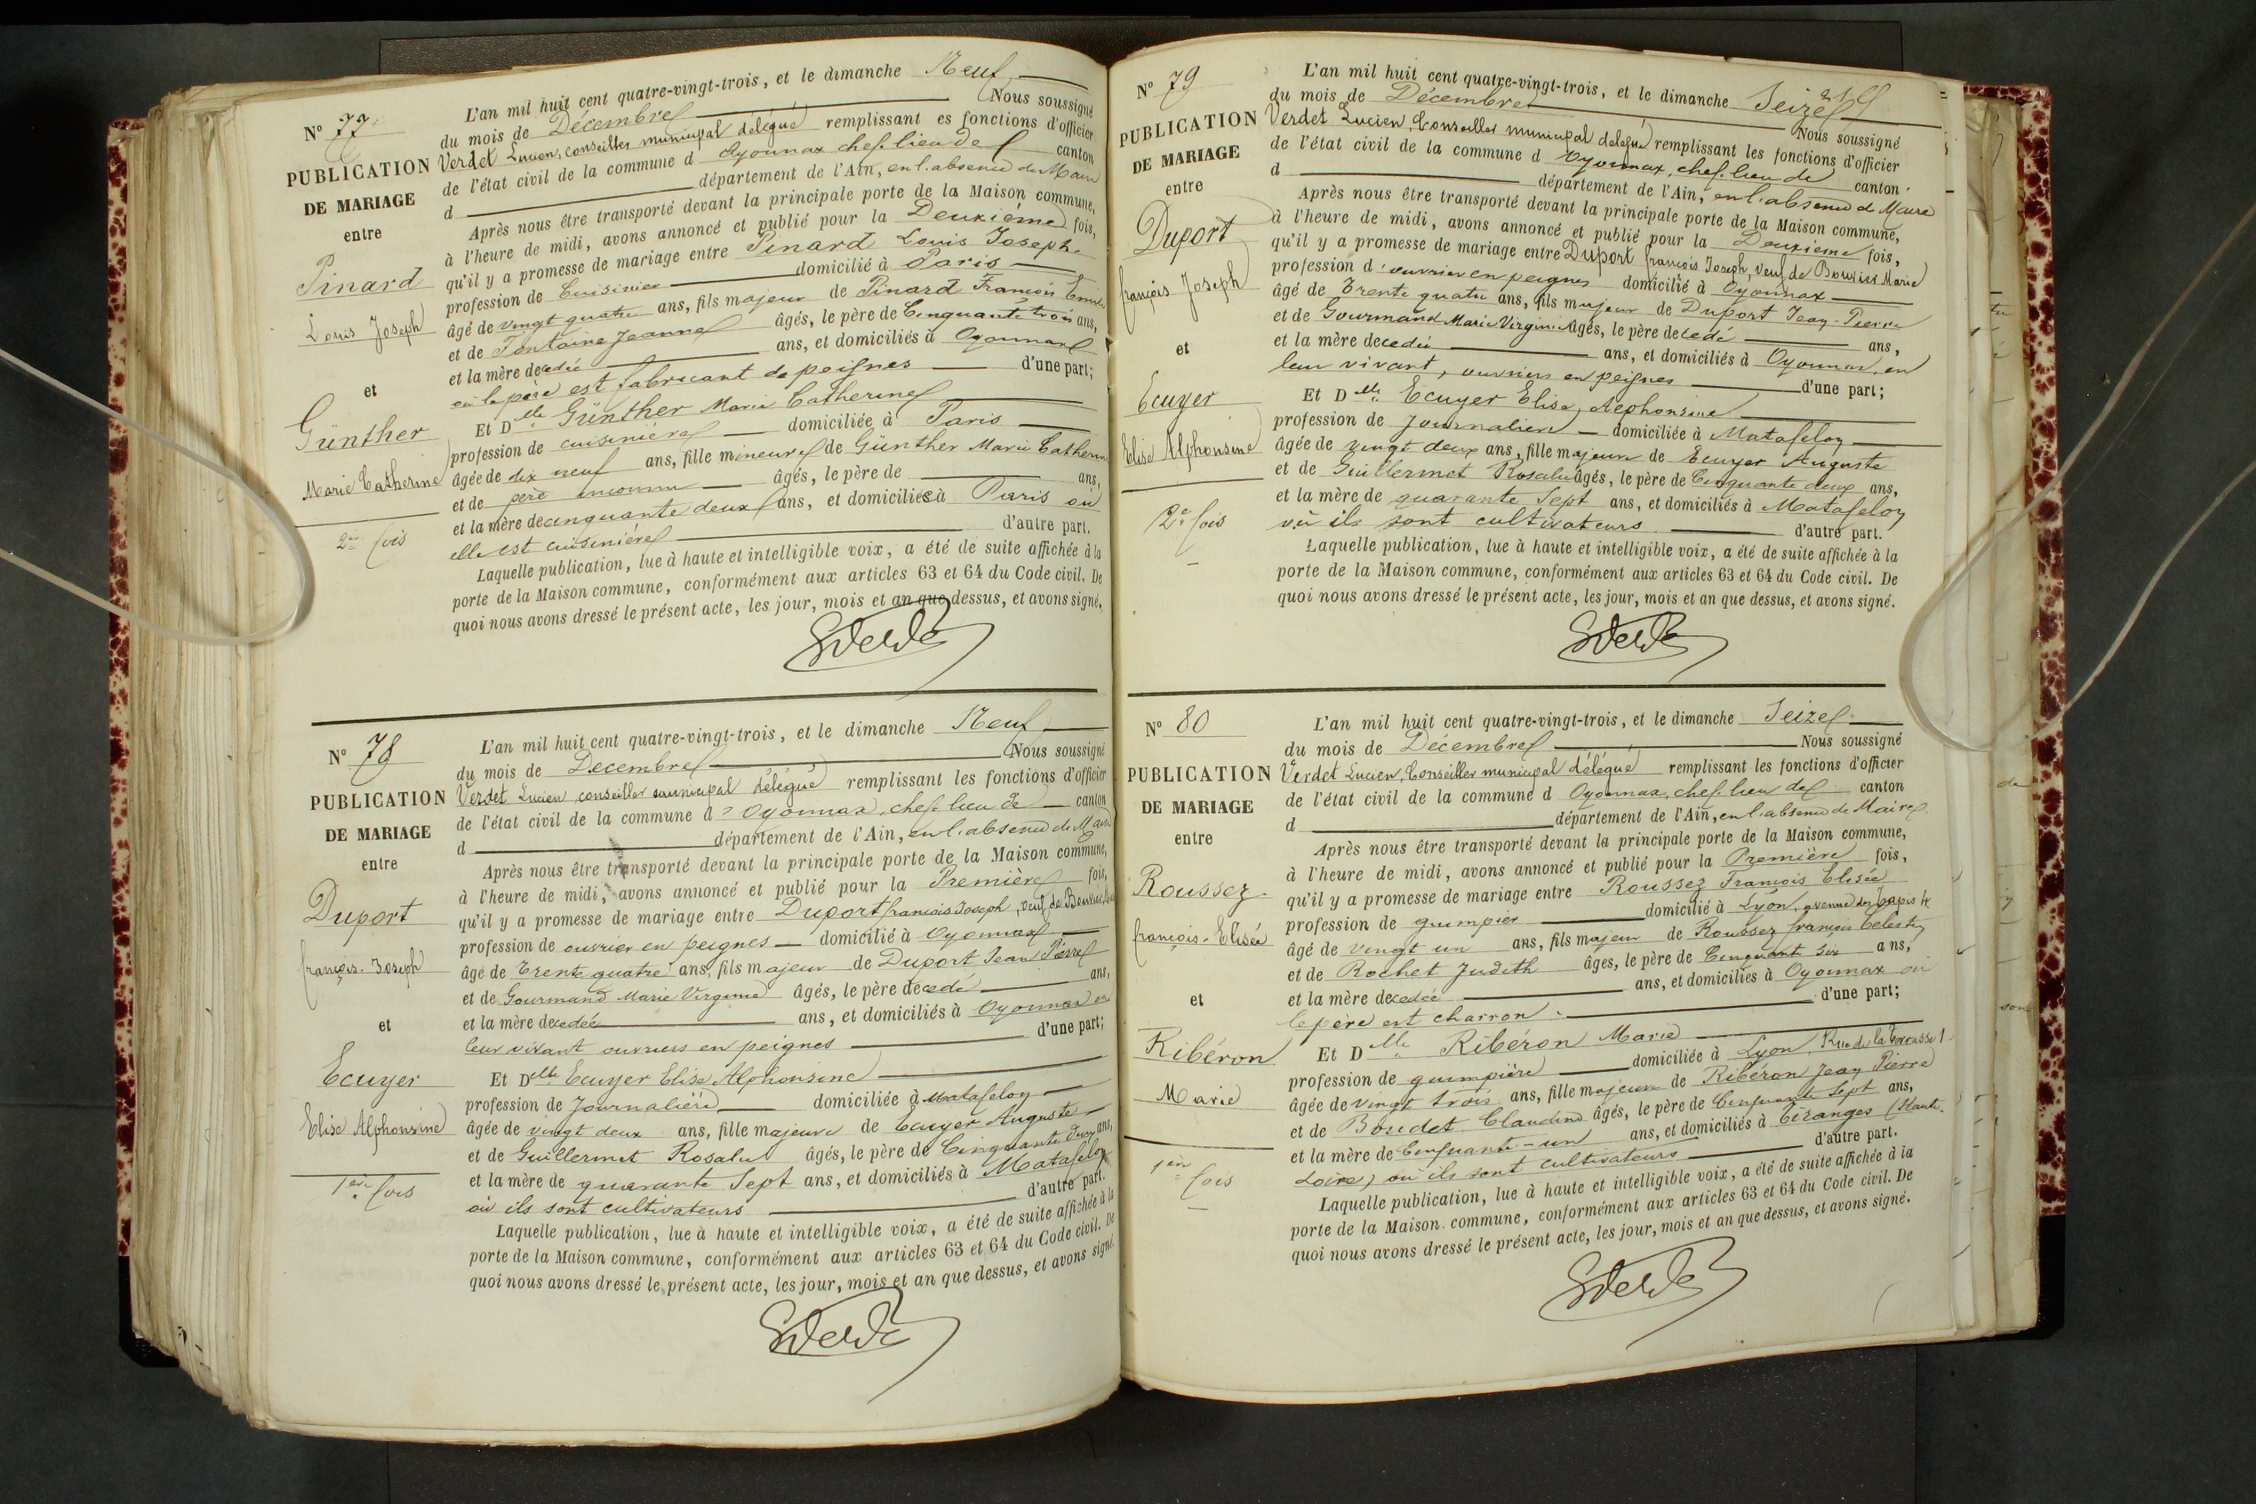 N° 77
PUBLICATION
DE MARIAGE
entre
Pinard
Louis Joseph
et
Günther
Marie Catherine
2me fois
L'an mil huit cent quatre-vingt-trois, et le dimanche Neuf
du mois de Décembre Nous soussigné
Verdet Lucien, conseiller municipal délégué remplissant es fonctions d'officier
de l'état civil de la commune d Oyonnax chef-lieu de canton
d département de l'Ain, en l'absence du Maire
Après nous être transporté devant la principale porte de la Maison commune,
à l'heure de midi, avons annoncé et publié pour la Deuxième fois,
qu'il y a promesse de mariage entre Pinard Louis Joseph
profession de Cuisinier domicilié à Paris
âgé de vingt quatre ans, fils majeur de Pinard François Emile
et de Fontaine Jeanne âgés, le père de Cinquante trois ans,
et la mère décédée ans, et domiciliés à Oyonnax
où le père est fabricant de peignes d'une part;
Et Dlle Günther Marie Catherine
profession de cuisinière domiciliée à Paris
âgée de dix neuf ans, fille mineure de Günther Marie Catherine
et de père inconnu âgés, le père de ans,
et la mère de cinquante deux ans, et domiciliés à Paris où
elle est cuisinière d'autre part.
Laquelle publication, lue à haute et intelligible voix, a été de suite affichée à la
porte de la Maison commune, conformément aux articles 63 et 64 du Code civil. De
quoi nous avons dressé le présent acte, les jour, mois et an que dessus, et avons signé.
N° 78
PUBLICATION
DE MARIAGE
entre
Duport
françois-Joseph
et
Ecuyer
Elise Alphonsine
1ere fois
L'an mil huit cent quatre-vingt-trois, et le dimanche Neuf
du mois de Decembre Nous soussigné
Verdet Lucien, conseiller municipal délégué remplissant les fonctions d'officier
de l'état civil de la commune d'Oyonnax, chef-lieu de canton
d département de l'Ain, en l'absence du Maire
Après nous être transporté devant la principale porte de la Maison commune,
à l'heure de midi, avons annoncé et publié pour la Première fois,
qu'il y a promesse de mariage entre Duport françois Joseph, veuf de
profession de ouvrier en peignes domicilié à Oyonnax
âgé de Trente quatre ans, fils majeur de Duport Jean Pierre
et de Gourmand Marie Virginie âgés, le père décédé ans,
et la mère décédée ans, et domiciliés à Oyonnax en
leur vivant ouvriers en peignes d'une part;
Et Dlle Ecuyer Elise Alphonsine
profession de Journalière domiciliée à Matafelon
âgée de vingt deux ans, fille majeure de Ecuyer Auguste
et de Guillermet Rosalie âgés, le père de Cinquante deux ans,
et la mère de quarante Sept ans, et domiciliés à Matafelon
où ils sont cultivateurs d'autre part.
Laquelle publication, lue à haute et intelligible voix, a été de suite affichée à la
porte de la Maison commune, conformément aux articles 63 et 64 du Code civil. De
quoi nous avons dressé le présent acte, les jour, mois et an que dessus, et avons signé.
N° 79
PUBLICATION
DE MARIAGE
entre
Duport
françois Joseph
et
Ecuyer
Elise Alphonsine
2e fois
L'an mil huit cent quatre-vingt-trois, et le dimanche Seize
du mois de Décembre Nous soussigné
Verdet Lucien, Conseiller municipal délégué remplissant les fonctions d'officier
de l'état civil de la commune d Oyonnax, chef-lieu de canton
d département de l'Ain, en l'absence du Maire
Après nous être transporté devant la principale porte de la Maison commune,
à l'heure de midi, avons annoncé et publié pour la Deuxieme fois,
qu'il y a promesse de mariage entre Duport françois Joseph, veuf de Marie
profession d'ouvrier en peignes domicilié à Oyonnax
âgé de Trente quatre ans, fils majeur de Duport Jean-Pierre
et de Gourmand Marie Virginie âgés, le père décédé ans,
et la mère décédée ans, et domiciliés à Oyonnax, en
leur vivant, ouvriers en peignes d'une part;
Et Dlle Ecuyer Elise, Alphonsine
profession de Journalière domiciliée à Matafelon
âgée de vingt deux ans, fille majeure de Ecuyer Auguste
et de Guillermet Rosalie âgés, le père de Cinquante deux ans,
et la mère de quarante Sept ans, et domiciliés à Matafelon
où ils sont cultivateurs d'autre part.
Laquelle publication, lue à haute et intelligible voix, a été de suite affichée à la
porte de la Maison commune, conformément aux articles 63 et 64 du Code civil. De
quoi nous avons dressé le présent acte, les jour, mois et an que dessus, et avons signé.
N° 80
PUBLICATION
DE MARIAGE
entre
Roussez
françois-Elisée
et
Ribéron
Marie
1ère fois
L'an mil huit cent quatre-vingt-trois, et le dimanche Seize
du mois de Décembre Nous soussigné
Verdet Lucien, Conseiller municipal délégué remplissant les fonctions d'officier
de l'état civil de la commune d Oyonnax, chef-lieu de canton
d département de l'Ain, en l'absence du Maire
Après nous être transporté devant la principale porte de la Maison commune,
à l'heure de midi, avons annoncé et publié pour la Première fois,
qu'il y a promesse de mariage entre Roussez François Elisée
profession de guimpier domicilié à Lyon, avenue des Tapis
âgé de vingt un ans, fils majeur de Roussez françois Celestin
et de Rochet Judith âgés, le père de Cinquante six ans,
et la mère décédée ans, et domiciliés à Oyonnax où
le père est charron. d'une part;
Et Dlle Ribéron Marie
profession de guimpière domiciliée à Lyon, Rue de la
âgée de vingt trois ans, fille majeure de Ribéron Jean Pierre
et de Boudet Claudine âgés, le père de Cinquante Sept ans,
et la mère de Cinquante-un ans, et domiciliés à Tiranges (Haute-
Loire) où ils sont cultivateurs d'autre part.
Laquelle publication, lue à haute et intelligible voix, a été de suite affichée à la
porte de la Maison commune, conformément aux articles 63 et 64 du Code civil. De
quoi nous avons dressé le présent acte, les jour, mois et an que dessus, et avons signé.